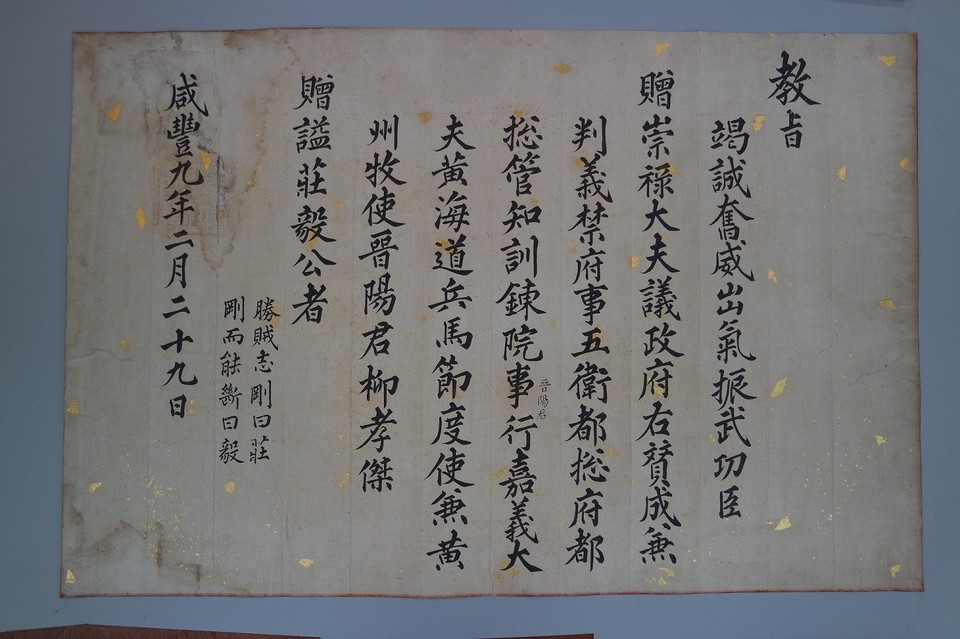 教旨
竭誠奮威出氣振武功臣
贈崇祿大夫議政府右贊成兼
判義禁府事五衛都揔府都
揔管知訓鍊院事晋陽君行嘉義大
夫黃海道兵馬節度使兼黃
州牧使晋陽君柳孝傑
贈謚莊毅公者
勝賊志剛曰莊
剛而能斷曰毅
咸豐九年二月二十九日